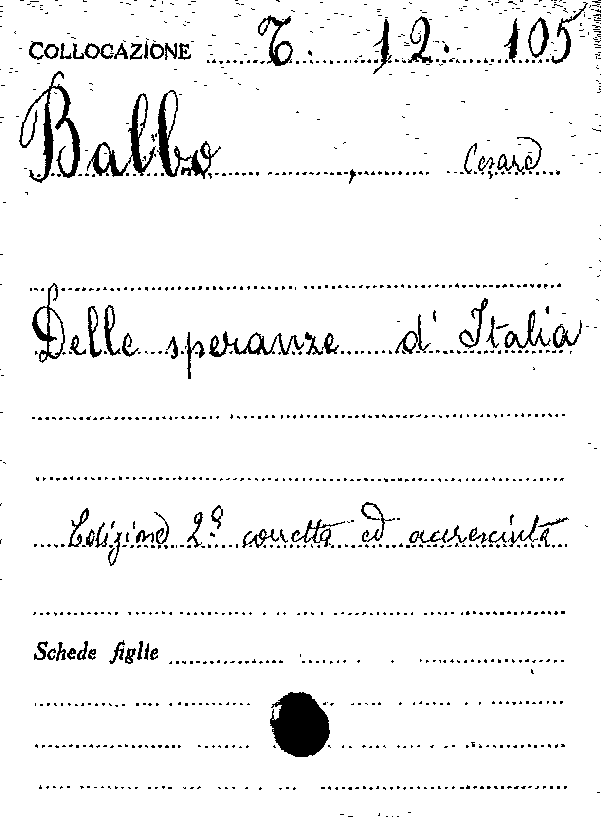 COLLOCAZIONE 7. 12. 105
Balbo, Cesare
Delle speranze d'Italia
Edizione 2ª corretta ed accresciuta
Schede figlie